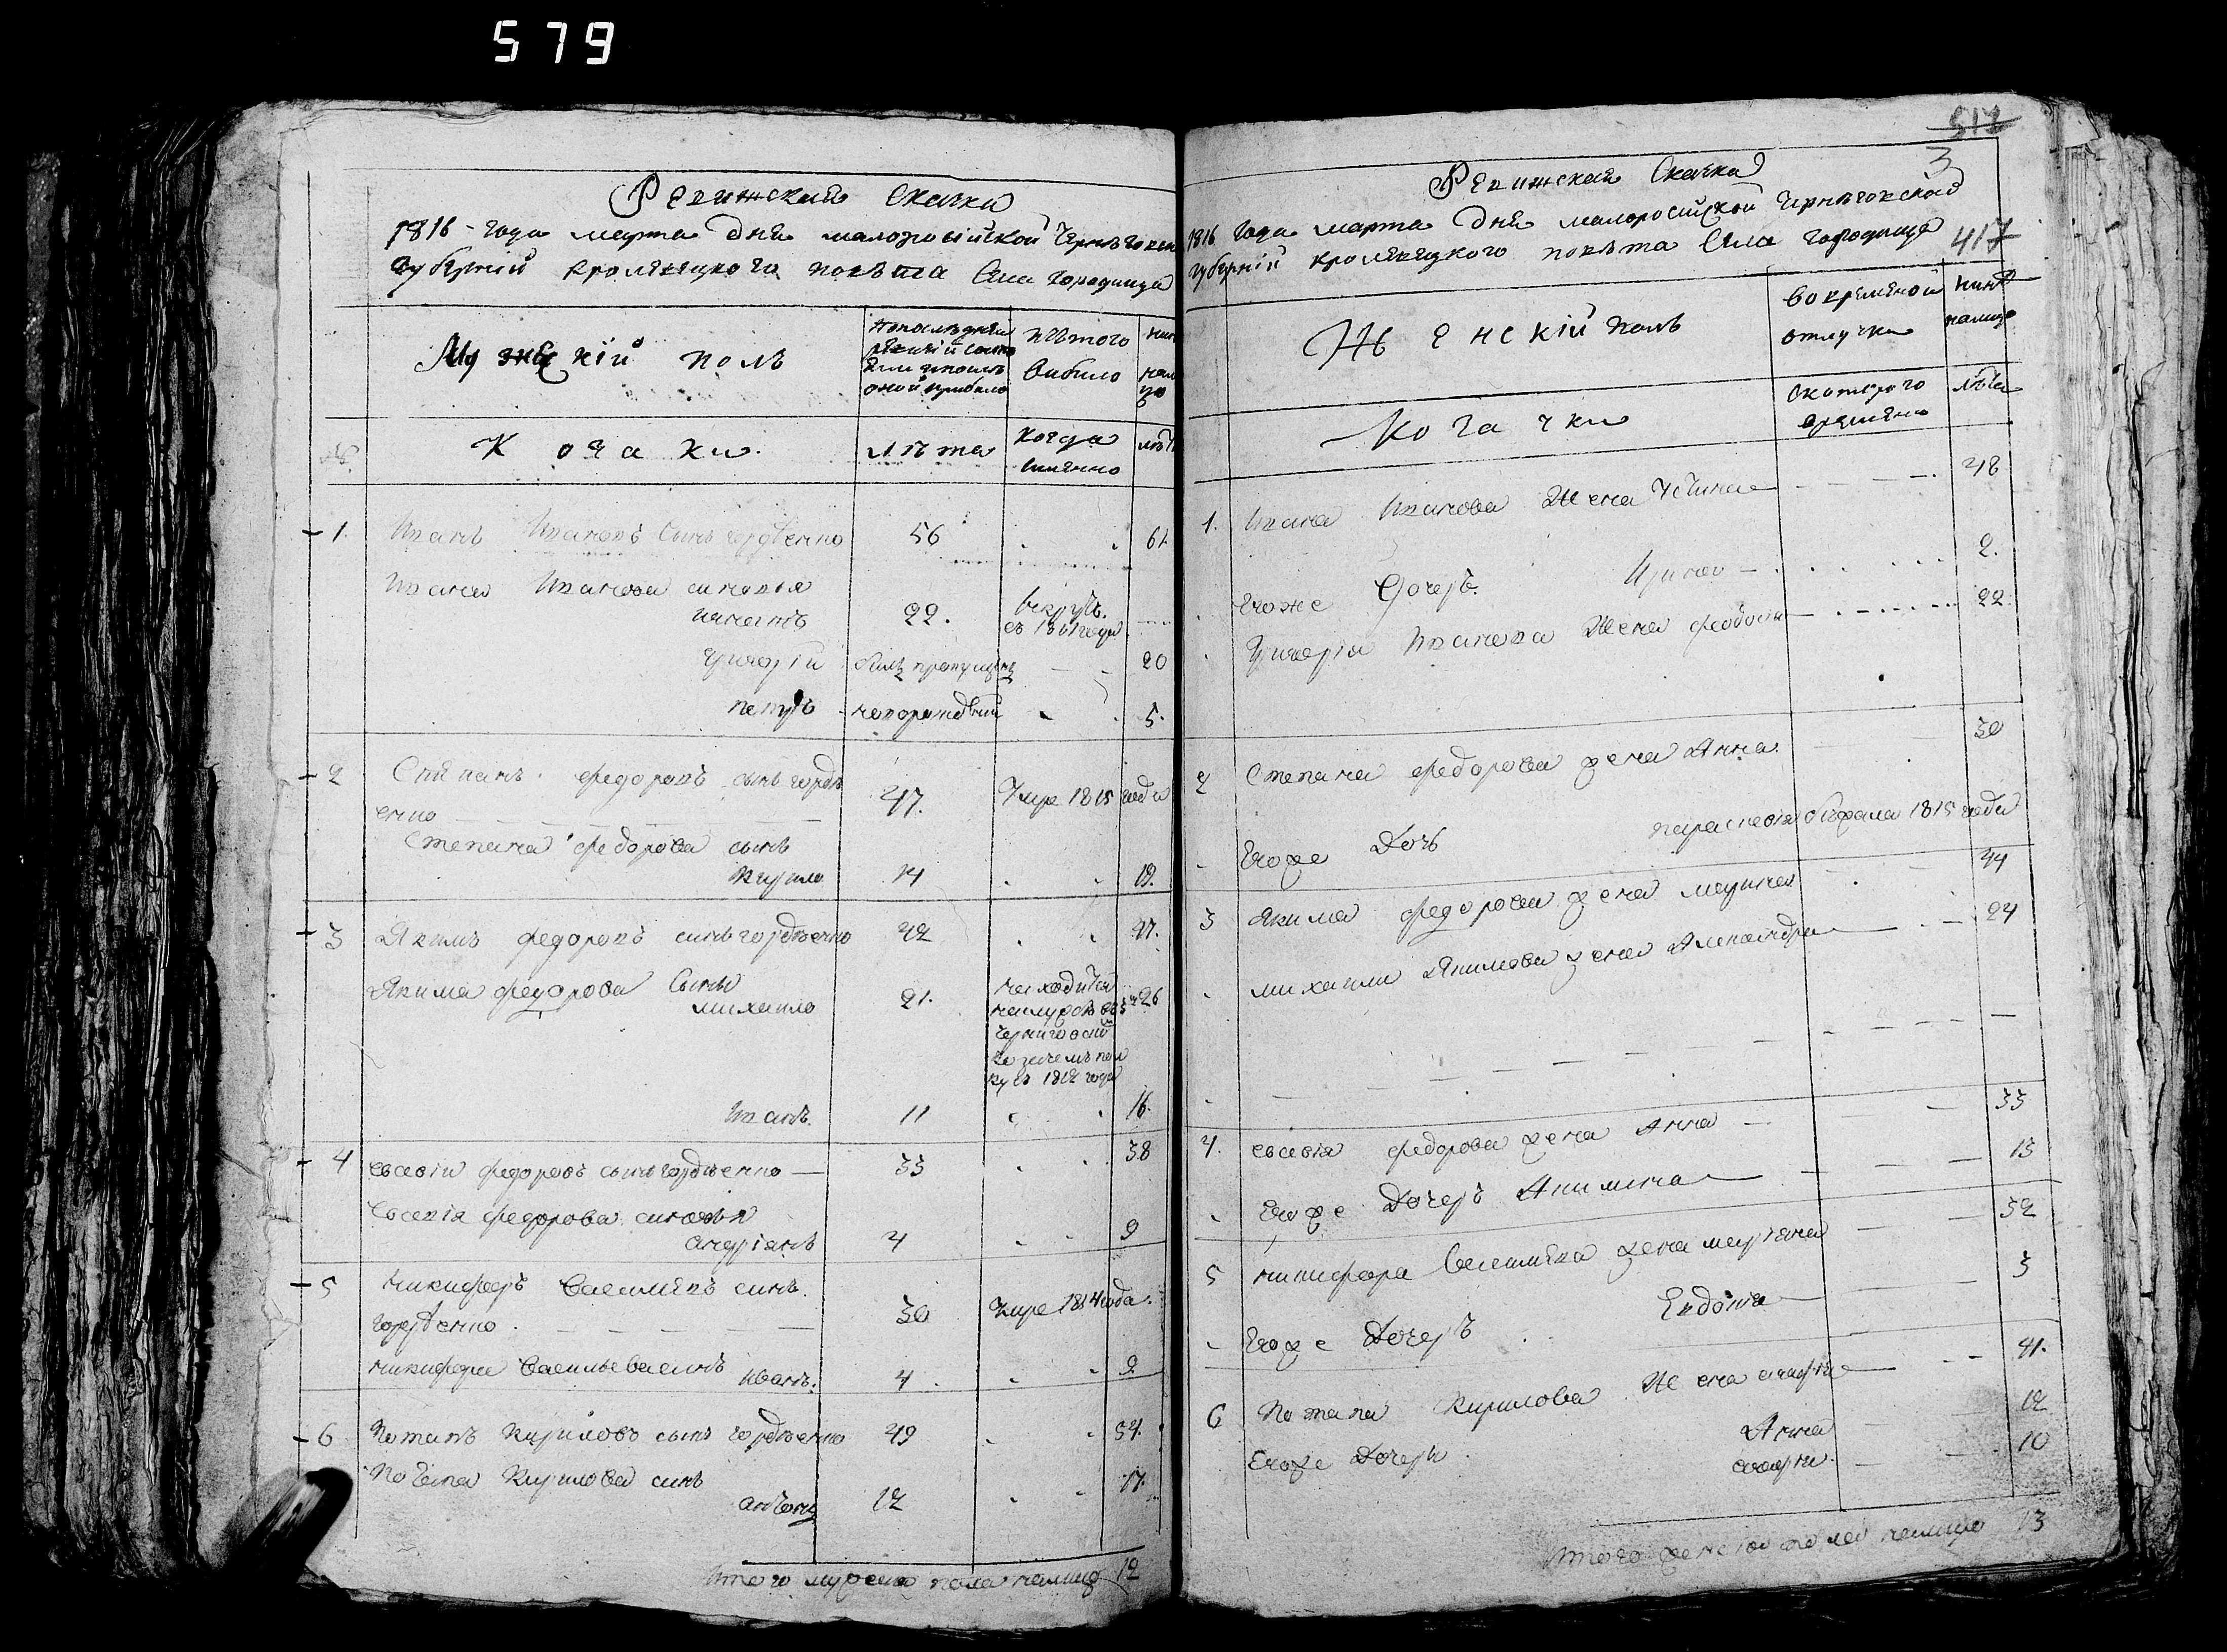 579
Ревижская Скаска
1816 - года марта дня малоросійской Чернѣговской
губерній кролевецкого повѣта Села городища
Мужескій полъ
Попоследней ревизіи состояли и после оной прибыло
Изтого Вибило
Нине налицо
№
Козаки
Лѣта
Когда имянно
лѣта
1. Иванъ Ивановъ Сынъ гордѣенко 56 61.
Ивана Иванова синовья
игнатъ 22. Врекруты с 1811 года
григорій билъ пропущенъ 20
петръ новорождений 5.
2 Степанъ федоровъ сынъ гордѣ
енко 47. Умре 1815 года
Степана федорова сынъ
Кирило 14 19.
3 Якимъ федоровъ синъ гордѣенко 42 47.
Якима федорова Сыны
михайло 21. находится 26
козачемъ пол
ку съ 1812 года
Иванъ. 11 16.
4 евсевій федоровъ сынъ гордѣенко 33 38
Евсевія федорова синовья
андріянъ 4 9
5 никифоръ Василиевъ синъ.
гордѣенко. 30 Умре 1814 года.
никифора Васильева синъ иванъ. 4. 9
6 Потапъ Кириловъ сынъ гордѣенко 49 54.
Потапа Кирилова синъ
антонъ 12 17.
Итого мужеска пола налицо 12
517
3
417
Ревижская Скаска
1816 года марта дня малоросійской Чернѣговской
губерній кролевецкого повѣта Села городища
Женскій полъ
Во временой отлучки
Нине налицо
Козачки
Скоторого времяни
лѣта
1. Ивана Иванова Жена Устина 48
Егоже Дочеръ. Ирина 2.
Григорія Иванова Жена феодосія 22.
2 Степана федорова жена Анна. 30
Егоже Дочъ параскевія 1815 года
3 Якима федорова жена марина 44
михаили Якимова жена Александра 24
4. евсевія федорова жена Анна 33
Егоже Дочеръ Акилина 13
5 никифора Василиева жена маріяна 32
Егоже Дочеръ Евдокія 3
6 Потапа Кирилова Жена агафія 41.
Егоже Дочери Анна 12
10
Итого женского пола налицо 13